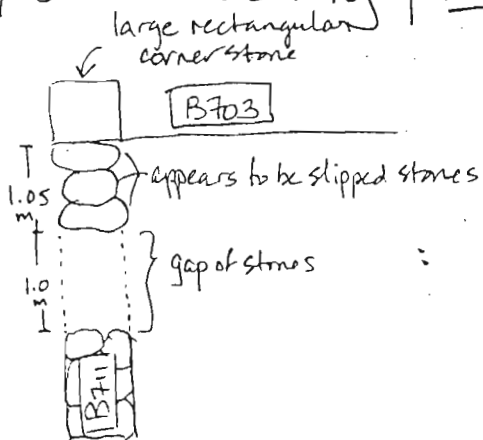 large rectangular
cornerstone
B703
appears to be slipped stones
1.05
m
gap of stones
1.0
m
B711